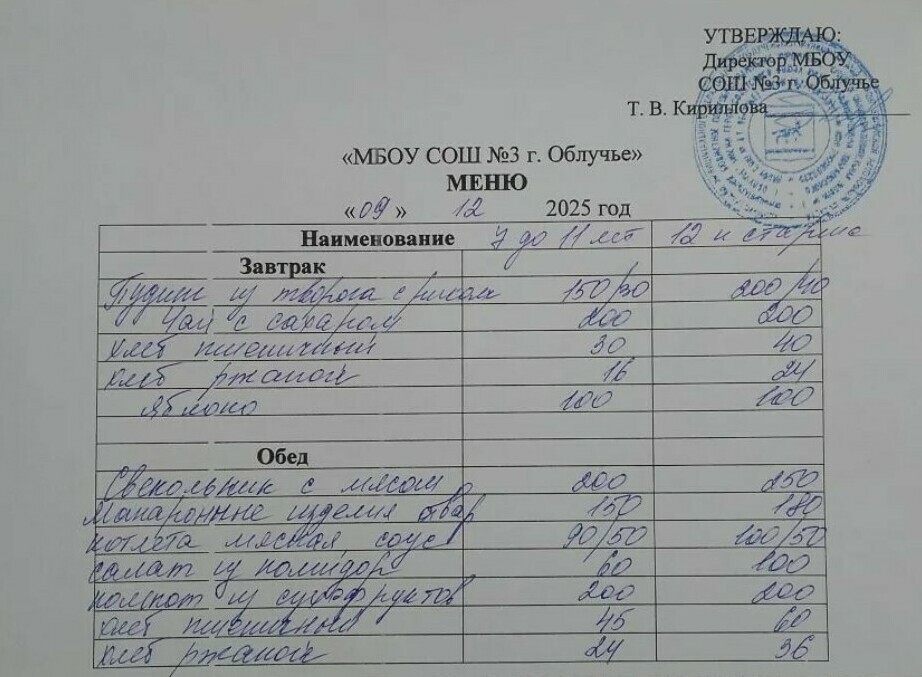 УТВЕРЖДАЮ:
Директор МБОУ
СОШ №3 г. Облучье
Т. В. Кириллова
«МБОУ СОШ №3 г. Облучье»
МЕНЮ
«09» 12 2025 год
Наименование 7 до 11 лет 12 и старше
Завтрак
Пудинг из творога с рисом 150/30 200/40
Чай с сахаром 200 200
хлеб пшеничный 30 40
хлеб ржаной 16 24
Яблоко 100 100
Обед
Свекольник с мясом 200 250
Макаронные изделия отвар 150 180
котлета мясная, соус 90/50 100/50
салат из помидор 60 100
компот из сухофруктов 200 200
хлеб пшеничный 45 60
хлеб ржаной 24 36